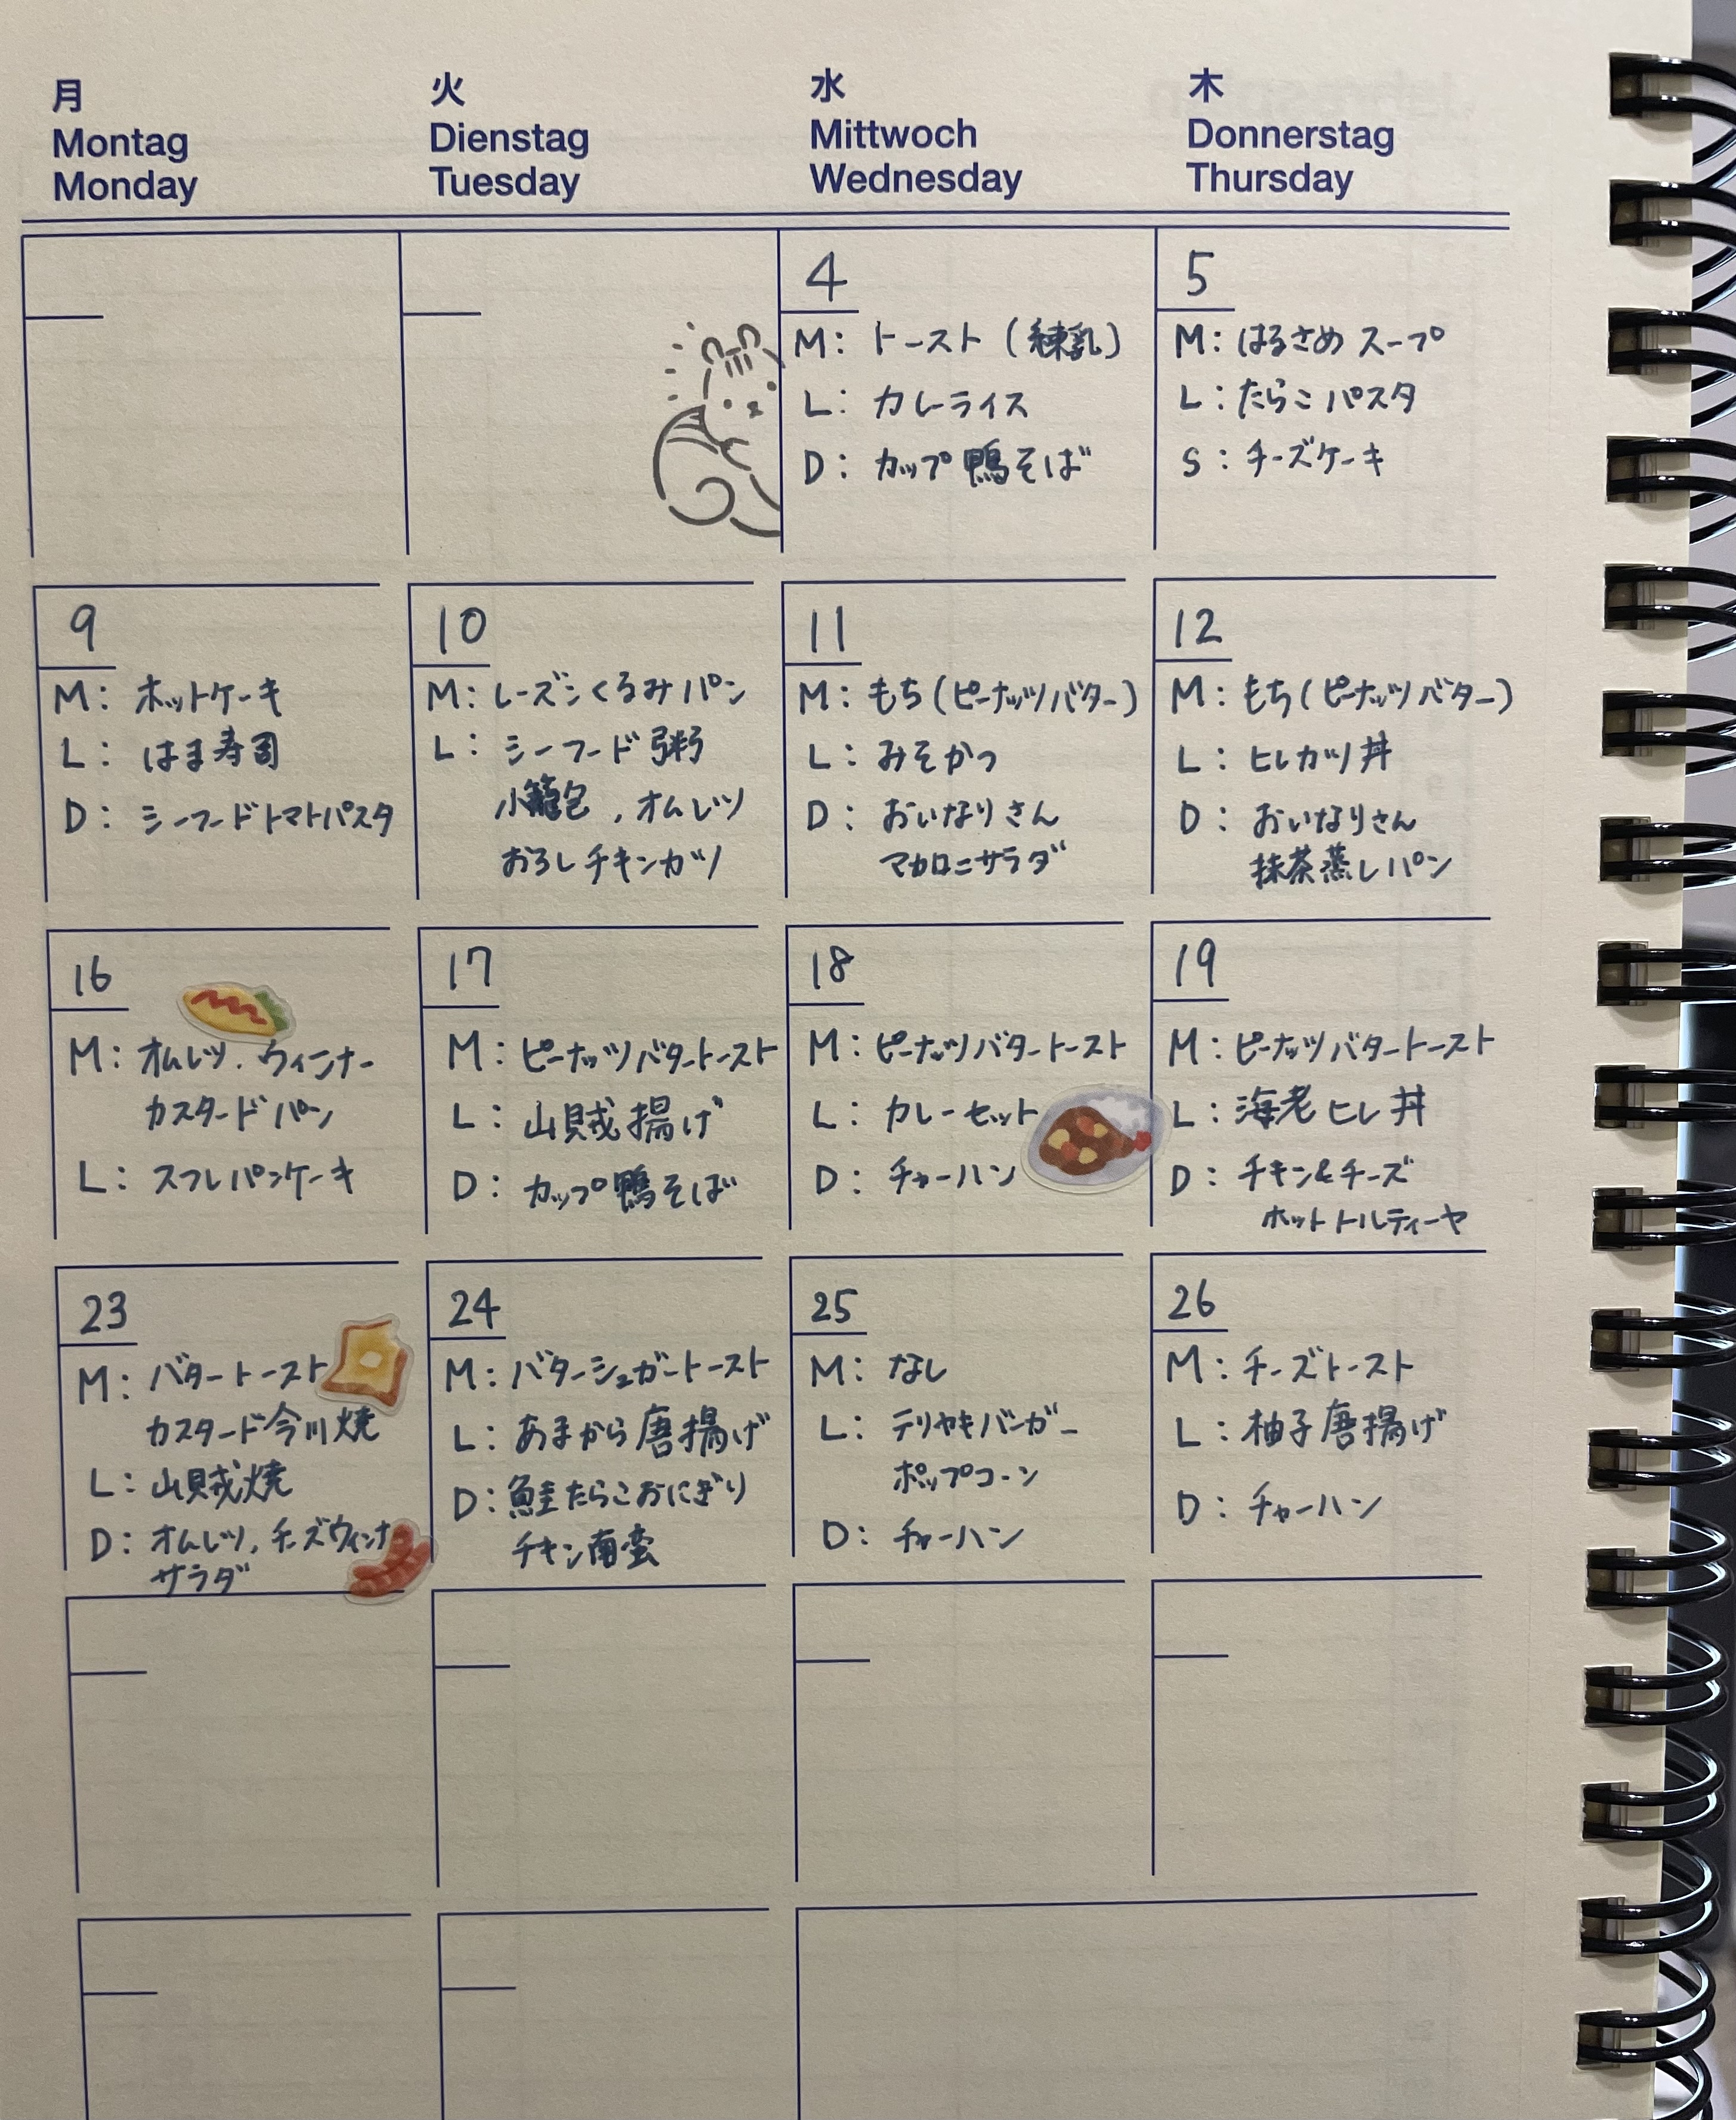 月
Montag
Monday
火
Dienstag
Tuesday
水
Mittwoch
Wednesday
木
Donnerstag
Thursday
4
M: トースト (練乳)
L: カレーライス
D: カップ鴨そば
5
M: はるさめ スープ
L: たらこ パスタ
S: チーズケーキ
9
M: ホットケーキ
L: はま寿司
D: シーフードトマトパスタ
10
M: レーズンくるみパン
L: シーフード粥
小籠包, オムレツ
おろしチキンカツ
11
M: もち(ピーナッツバター)
L: みそかつ
D: おいなりさん
マカロニサラダ
12
M: もち(ピーナッツバター)
L: ヒレカツ丼
D: おいなりさん
抹茶蒸しパン
16
M: オムレツ, ウィンナー
カスタードパン
L: スフレパンケーキ
17
M: ピーナッツバタートースト
L: 山賊揚げ
D: カップ鴨そば
18
M: ピーナッツバタートースト
L: カレーセット
D: チャーハン
19
M: ピーナッツバタートースト
L: 海老ヒレ丼
D: チキン&チーズ
ホットトルティーヤ
23
M: バタートースト
カスタード今川焼
L: 山賊焼
D: オムレツ, チーズウィンナ
サラダ
24
M: バターシュガートースト
L: あまから唐揚げ
D: 鮭たらこおにぎり
チキン南蛮
25
M: なし
L: テリヤキバーガー
ポップコーン
D: チャーハン
26
M: チーズトースト
L: 柚子唐揚げ
D: チャーハン